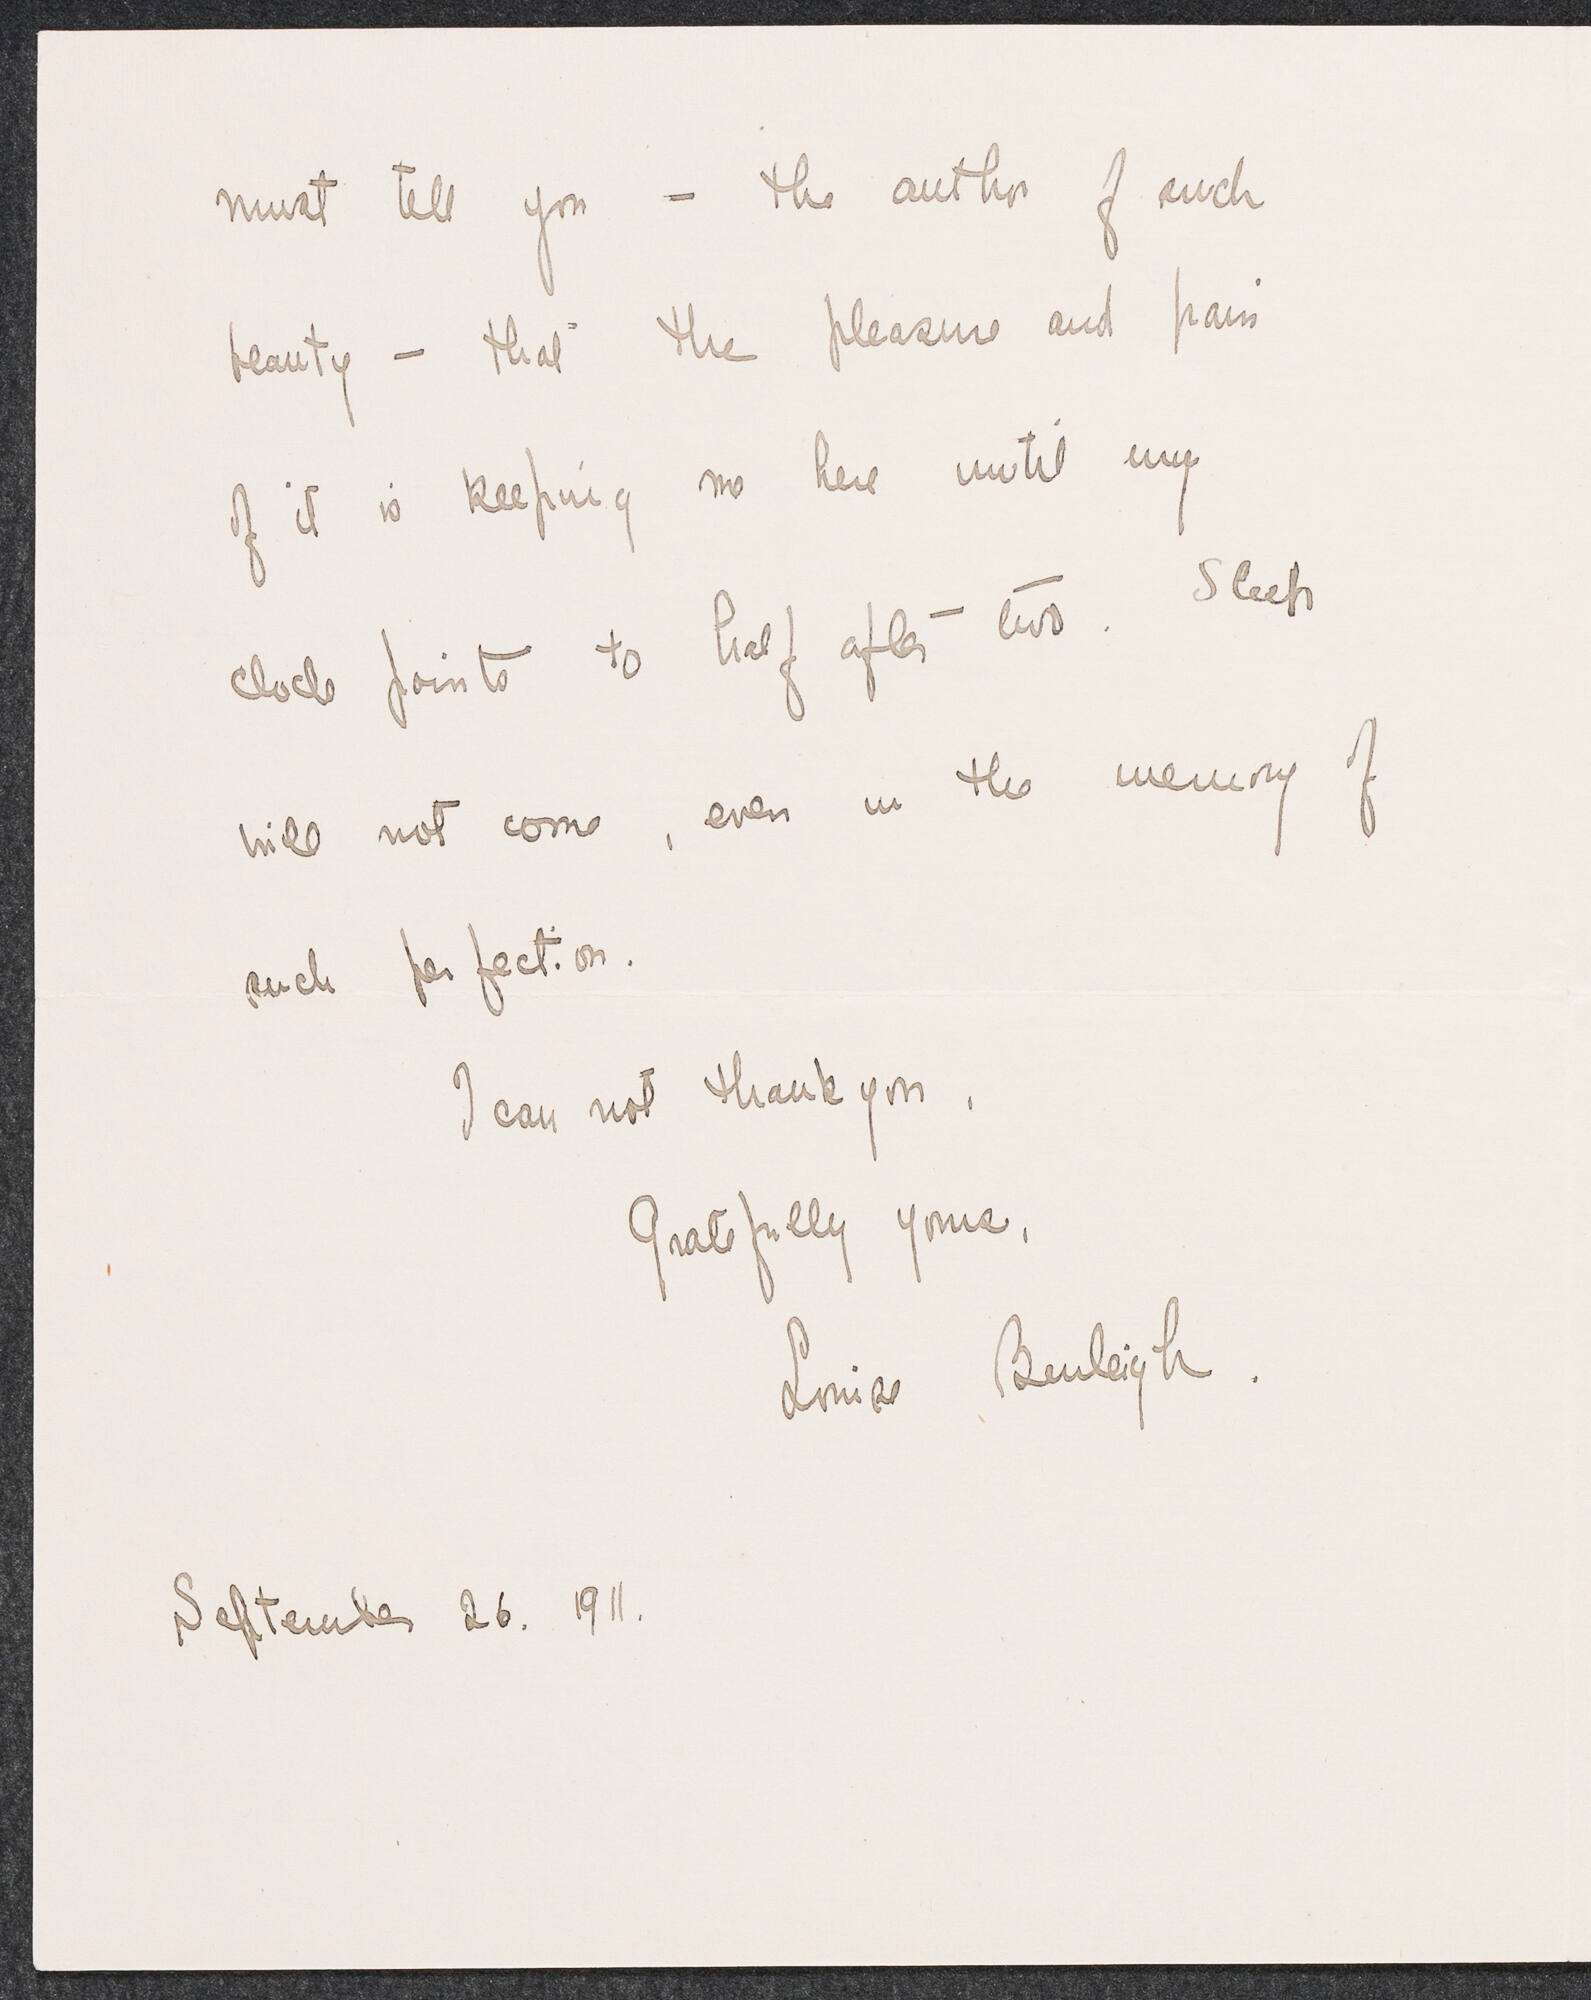 must tell you – the author of such
beauty – that the pleasure and pain
of it is keeping me here until my
clock points to half after two. Sleep
will not come, even in the memory of
such perfection.
I can not thank you.
Gratefully yours,
Louise Burleigh.
September 26. 1911.